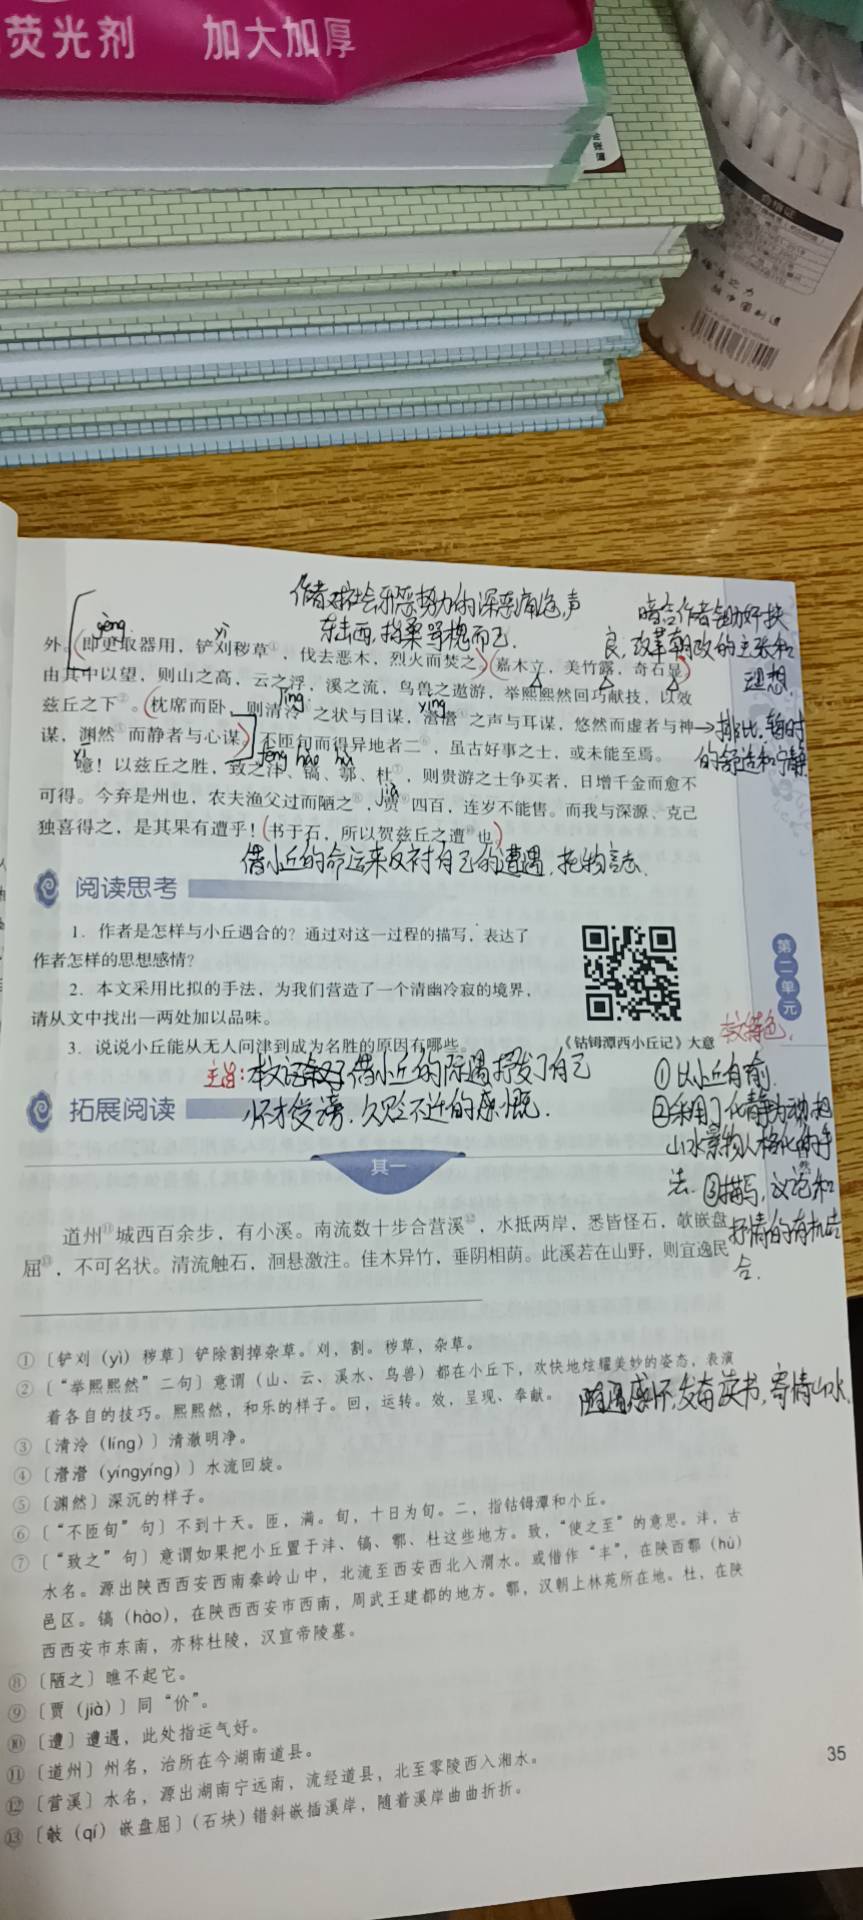 荧光剂 加大加厚
合格证
作者对社会邪恶势力的深恶痛绝,声
东击西,指桑骂槐而已.
暗含作者锄奸扶
良,改革朝政的主张和
理想.
gèng
yì
外。即更取器用,铲刈秽草①,伐去恶木,烈火而焚之。嘉木立,美竹露,奇石显。
由其中以望,则山之高,云之浮,溪之流,鸟兽之遨游,举熙熙然回巧献技,以效
兹丘之下②。枕席而卧,则清泠③之状与目谋,瀯瀯④之声与耳谋,悠然而虚者与神
líng
yíng
谋,渊然⑤而静者与心谋。不匝旬而得异地者二⑥,虽古好事之士,或未能至焉。
排比,暂时
的舒适和宁静
yī
fēng hào hù
噫!以兹丘之胜,致之沣、镐、鄠、杜⑦,则贵游之士争买者,日增千金而愈不
可得。今弃是州也,农夫渔父过而陋之⑧,贾⑨四百,连岁不能售。而我与深源、克己
jià
独喜得之,是其果有遭乎!书于石,所以贺兹丘之遭⑩也。
借小丘的命运来反衬自己的遭遇,托物言志.
阅读思考
1. 作者是怎样与小丘遇合的?通过对这一过程的描写,表达了
作者怎样的思想感情?
2. 本文采用比拟的手法,为我们营造了一个清幽冷寂的境界,
请从文中找出一两处加以品味。
3. 说说小丘能从无人问津到成为名胜的原因有哪些。
《钴鉧潭西小丘记》大意
第二单元
主旨:本文记叙了借小丘的际遇抒发了自己
怀才受谤,久贬不迁的感慨.
本文特色.
①以小丘自喻.
②采用了化静为动,把
山水景物人格化的手
法.③描写,议论和
抒情的有机结
合.
拓展阅读
其一
道州⑪城西百余步,有小溪。南流数十步合营溪⑫,水抵两岸,悉皆怪石,攲嵌盘
屈⑬,不可名状。清流触石,洄悬激注。佳木异竹,垂阴相荫。此溪若在山野,则宜逸民
①〔铲刈(yì)秽草〕铲除割掉杂草。刈,割。秽草,杂草。
②〔“举熙熙然”二句〕意谓(山、云、溪水、鸟兽)都在小丘下,欢快地炫耀美妙的姿态,表演
着各自的技巧。熙熙然,和乐的样子。回,运转。效,呈现、奉献。
随遇感怀,发奋读书,寄情山水.
③〔清泠(líng)〕清澈明净。
④〔瀯瀯(yíngyíng)〕水流回旋。
⑤〔渊然〕深沉的样子。
⑥〔“不匝旬”句〕不到十天。匝,满。旬,十日为旬。二,指钴鉧潭和小丘。
⑦〔“致之”句〕意谓如果把小丘置于沣、镐、鄠、杜这些地方。致,“使之至”的意思。沣,古
水名。源出陕西西安西南秦岭山中,北流至西安西北入渭水。或借作“丰”,在陕西鄠(hù)
邑区。镐(hào),在陕西西安市西南,周武王建都的地方。鄠,汉朝上林苑所在地。杜,在陕
西西安市东南,亦称杜陵,汉宣帝陵墓。
⑧〔陋之〕瞧不起它。
⑨〔贾(jià)〕同“价”。
⑩〔遭〕遭遇,此处指运气好。
⑪〔道州〕州名,治所在今湖南道县。
⑫〔营溪〕水名,源出湖南宁远南,流经道县,北至零陵西入湘水。
⑬〔攲(qí)嵌盘屈〕(石块)错斜嵌插溪岸,随着溪岸曲曲折折。
35